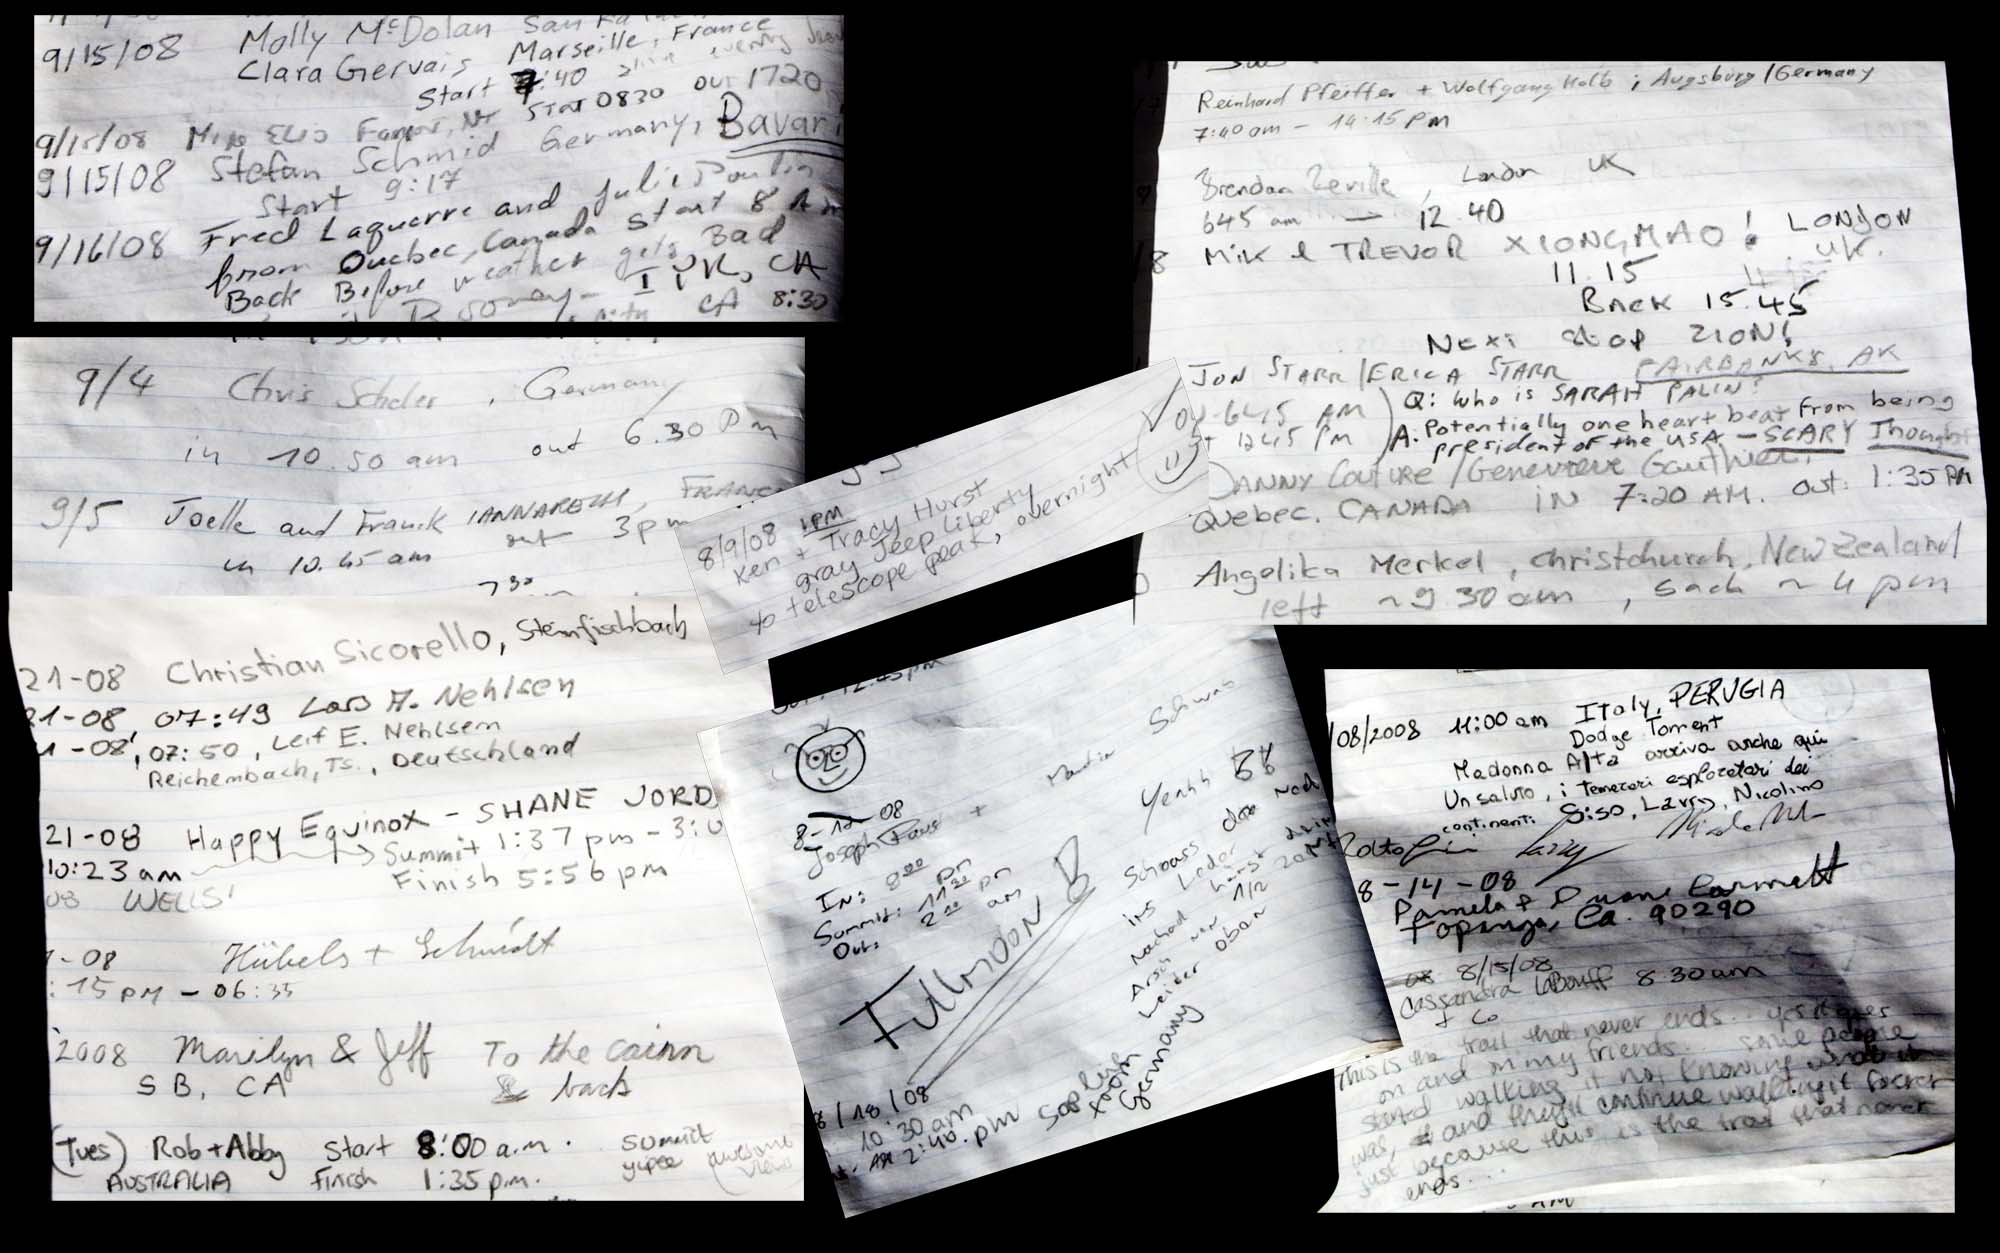 9/15/08 Molly McDolan San
Clara Gervais Marseille, France
Start 7:40
9/15/08 Mike Elis Start 0830 out 1720
9/15/08 Stefan Schmid Germany, Bavari
Start 9:17
9/16/08 Fred Laquerre and Julie Poulin
from Quebec, Canada Start 8 Am
Back Before weather gets Bad
CA
CA 8:30
9/4 Chris Scheler, Germany
in 10.50 am out 6.30 Pm
9/5 Joelle and Franck IANNARELLI, FRANC
in 10.45 am out 3pm
730
21-08 Christian Sicorello, Steinfischbach
21-08, 07:49 Lars A. Nehlsen
1-08, 07:50, Leif E. Nehlsen
Reichenbach, Ts., Deutschland
21-08 Happy Equinox - SHANE JORD
10:23 am Summit 1:37 pm - 3:0
Finish 5:56 pm
08 WELLS!
-08 Hübels + Schmidt
:15 pm - 06:35
2008 Marilyn & Jeff To the cairn
SB, CA & back
(Tues) Rob + Abby Start 8:00 a.m. summit
AUSTRALIA finish 1:35 p.m. yipee awesome views
8/9/08 1PM
Ken + Tracy Hurst
gray Jeep Liberty
to telescope peak, overnight
8-12-08
Joseph + Martin Schwab
In: 8:00 pm
Summit: 11:30 pm
Out: 2:00 am
FullmOON
Yeahh
Schwass
ins Leider
Arsch
Leider oban
8/18/08
10:30 am
2:40 pm
Germany
Reinhard Pfeiffer + Wolfgang Kolb ; Augsburg/Germany
7:40 am - 14:15 pm
Brendan Reville, London UK
645 am - 12.40
Mik & TREVOR XIONGMAO! LONDON
UK.
11.15
Back 15.45
Next stop ZION!
JON STARR/ERICA STARR FAIRBANKS, AK
6:45 AM Q: Who is SARAH PALIN?
1245 PM A: Potentially one heart beat from being
president of the USA - SCARY Thought
DANNY Couture/Genevieve Gauthier,
Quebec. CANADA IN 7:20 AM. out: 1:35 PM
Angelika Merkel, Christchurch, New Zealand
left ~9 30 am, back ~4 pm
/08/2008 11:00 am Italy, PERUGIA
Dodge Torment
Madonna Alta arriva anche qui
Un saluto, i temerari esploratori dei
continenti Siso, Larry, Nicolino
Larry
8-14-08
Pamela & Duane
Topanga, Ca. 90290
8/15/08
Cassandra LaBouff 8 30 am
+ Co
This is the trail that never ends.. yes it goes
on and on my friends. some people
started walking it not knowing what it
was, and they'll continue walking it forever
just because this is the trail that never
ends...
AM